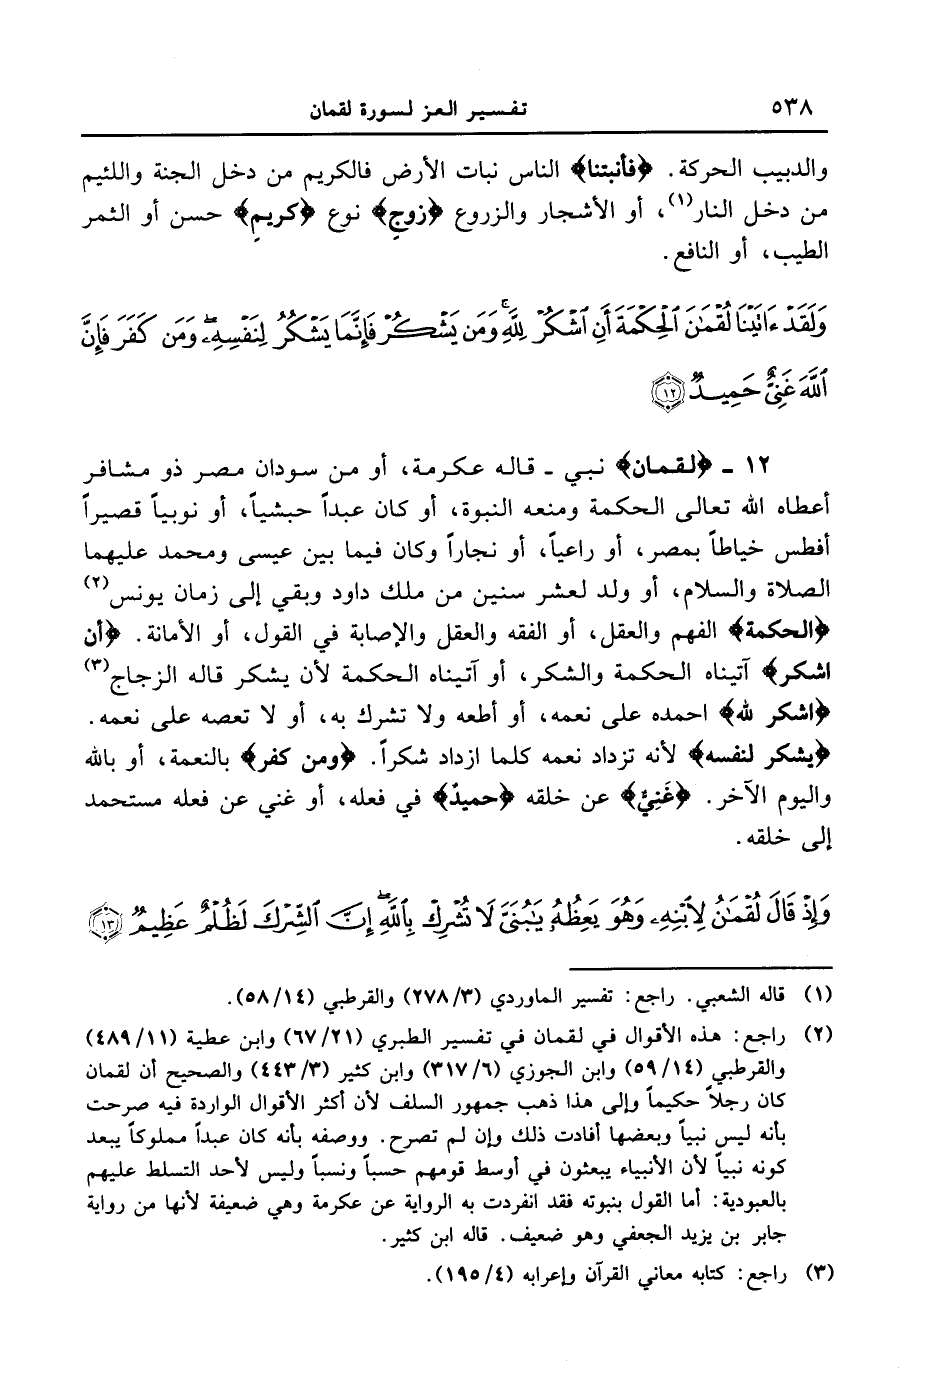 ٥٣٨ تفسير العز لسورة لقمان
والدبيب الحركة. ﴿فأنبتنا﴾ الناس نبات الأرض فالكريم من دخل الجنة واللئيم
من دخل النار(١)، أو الأشجار والزروع ﴿زوجٍ﴾ نوع ﴿كريمٍ﴾ حسن أو الثمر
الطيب، أو النافع.
وَلَقَدْ ءَاتَيْنَا لُقْمَٰنَ ٱلْحِكْمَةَ أَنِ ٱشْكُرْ لِلَّهِ ۚ وَمَن يَشْكُرْ فَإِنَّمَا يَشْكُرُ لِنَفْسِهِۦ ۖ وَمَن كَفَرَ فَإِنَّ
ٱللَّهَ غَنِىٌّ حَمِيدٌ ﴿١٢﴾
١٢ - ﴿لقمان﴾ نبي - قاله عكرمة، أو من سودان مصر ذو مشافر
أعطاه الله تعالى الحكمة ومنعه النبوة، أو كان عبداً حبشياً، أو نوبياً قصيراً
أفطس خياطاً بمصر، أو راعياً، أو نجاراً وكان فيما بين عيسى ومحمد عليهما
الصلاة والسلام، أو ولد لعشر سنين من ملك داود وبقي إلى زمان يونس(٢)
﴿الحكمة﴾ الفهم والعقل، أو الفقه والعقل والإصابة في القول، أو الأمانة. ﴿أن
اشكر﴾ آتيناه الحكمة والشكر، أو آتيناه الحكمة لأن يشكر قاله الزجاج(٣)
﴿اشكر لله﴾ احمده على نعمه، أو أطعه ولا تشرك به، أو لا تعصه على نعمه.
﴿يشكر لنفسه﴾ لأنه تزداد نعمه كلما ازداد شكراً. ﴿ومن كفر﴾ بالنعمة، أو بالله
واليوم الآخر. ﴿غَنِيٌ﴾ عن خلقه ﴿حميدٌ﴾ في فعله، أو غني عن فعله مستحمد
إلى خلقه.
وَإِذْ قَالَ لُقْمَٰنُ لِٱبْنِهِۦ وَهُوَ يَعِظُهُۥ يَٰبُنَىَّ لَا تُشْرِكْ بِٱللَّهِ ۖ إِنَّ ٱلشِّرْكَ لَظُلْمٌ عَظِيمٌ ﴿١٣﴾
(١) قاله الشعبي. راجع: تفسير الماوردي (٢٧٨/٣) والقرطبي (٥٨/١٤).
(٢) راجع: هذه الأقوال في لقمان في تفسير الطبري (٦٧/٢١) وابن عطية (٤٨٩/١١)
والقرطبي (٥٩/١٤) وابن الجوزي (٣١٧/٦) وابن كثير (٤٤٣/٣) والصحيح أن لقمان
كان رجلاً حكيماً وإلى هذا ذهب جمهور السلف لأن أكثر الأقوال الواردة فيه صرحت
بأنه ليس نبياً وبعضها أفادت ذلك وإن لم تصرح. ووصفه بأنه كان عبداً مملوكاً يبعد
كونه نبياً لأن الأنبياء يبعثون في أوسط قومهم حسباً ونسباً وليس لأحد التسلط عليهم
بالعبودية: أما القول بنبوته فقد انفردت به الرواية عن عكرمة وهي ضعيفة لأنها من رواية
جابر بن يزيد الجعفي وهو ضعيف. قاله ابن كثير.
(٣) راجع: كتابه معاني القرآن وإعرابه (١٩٥/٤).